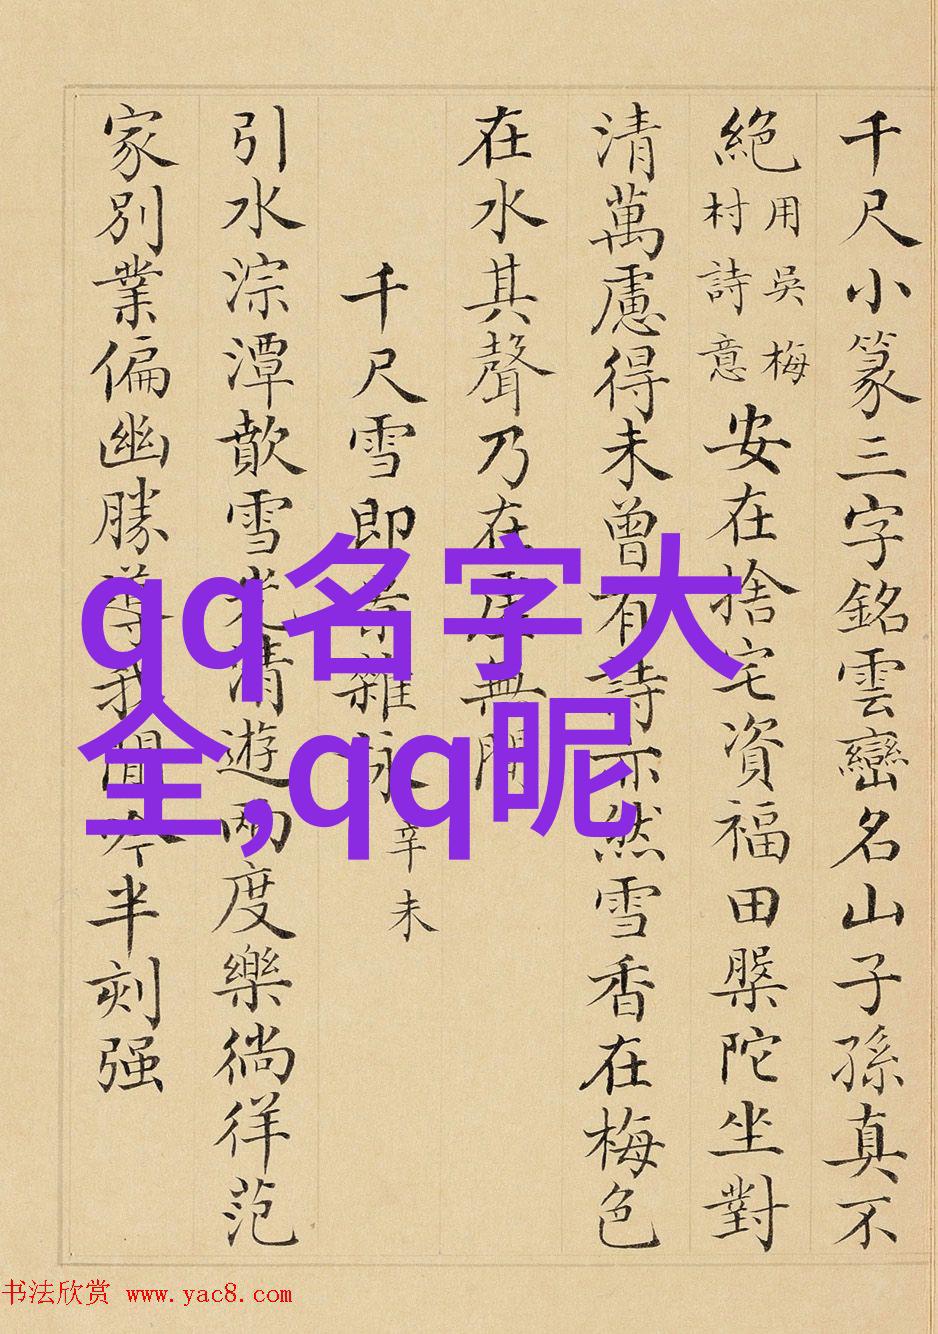 千尺小篆三字銘雲巒名山子孫真不
絕用吳梅村詩意安在捨宅資福田槃陀坐對
清萬慮得未曾有詩不然雪香在梅色
在水其聲乃在虛無間
千尺雪即景雜詠辛未
引水淙潭歕雪光清遊兩度樂徜徉范
家別業偏幽勝導我閒吟半刻强
qq名字大
全,qq昵
书法欣赏 www.yac8.com